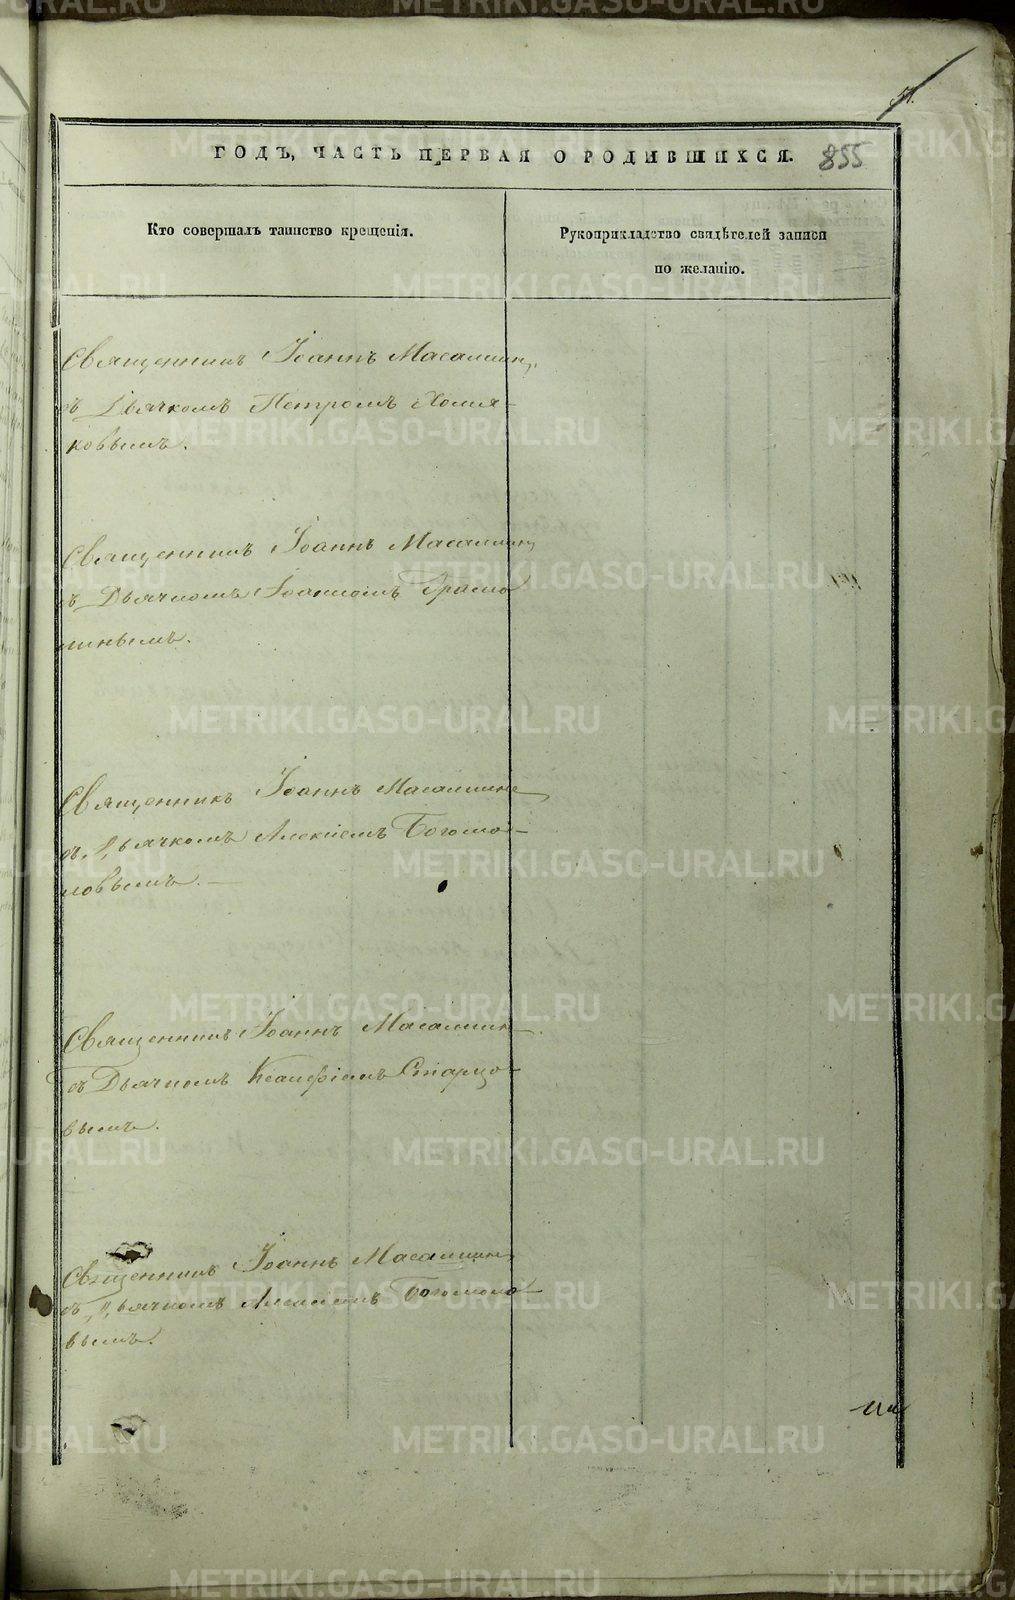 51.
ГОДЪ, ЧАСТЬ ПЕРВАЯ О РОДИВШИХСЯ. 855
Кто совершалъ таинство крещенія.
Рукоприкладство свидѣтелей записи
по желанію.
Священникъ Іоаннъ Масалкин
съ Дьячкомъ Петромъ Хомя-
ковымъ.
Священникъ Іоаннъ Масалкин
съ Дьячкомъ Іоанномъ Грамо
линымъ.
Священникъ Іоаннъ Масалкин
съ Дьячкомъ Алексіемъ Богомо-
ловымъ.
Священникъ Іоаннъ Масалкин
съ Дьячкомъ Старцо-
вымъ.
Священникъ Іоаннъ Масалкин
съ Дьячкомъ Алексіемъ Богомоло-
вымъ.
METRIKI.GASO-URAL.RU